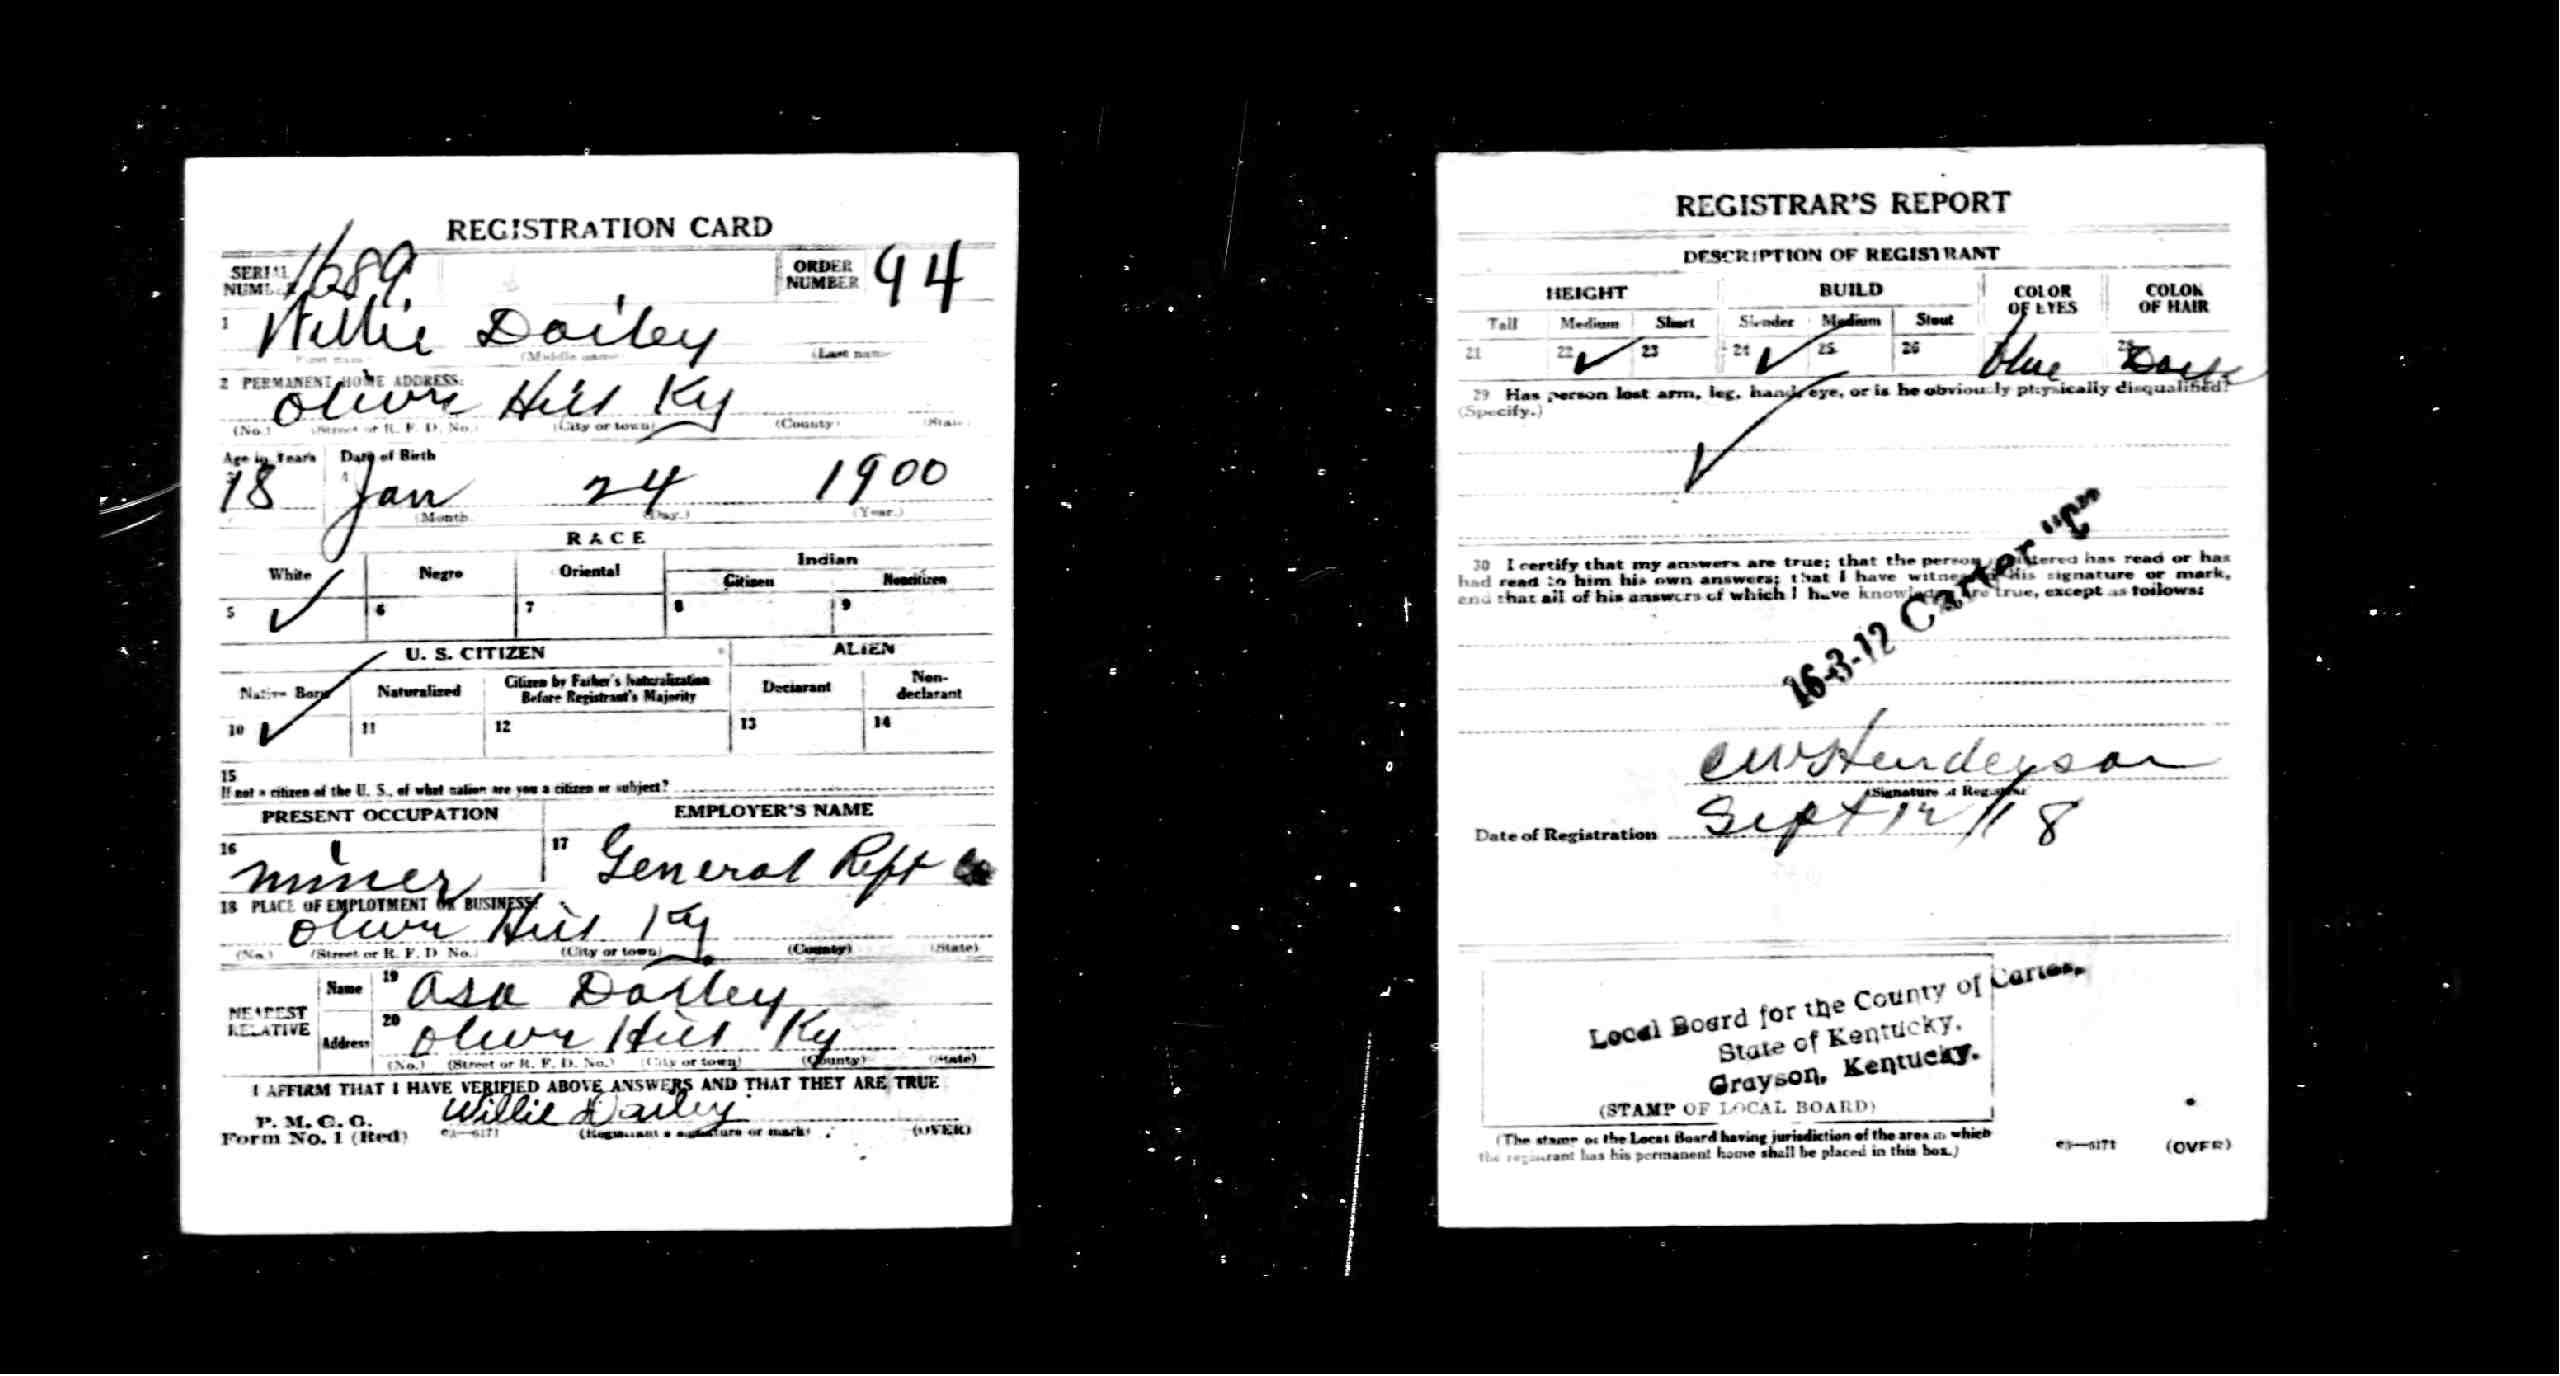 REGISTRATION CARD
SERIAL NUMBER 1689 ORDER NUMBER 94
1 Willie Dailey
(Middle name) (Last name)
2 PERMANENT HOME ADDRESS:
Olive Hill Ky
(No.) (Street or R. F. D. No.) (City or town) (County) (State)
Age in Years Date of Birth
18 Jan 24 1900
(Month) (Day.) (Year.)
RACE
White Negro Oriental Indian
Citizen Noncitizen
5 ✓ 6 7 8 9
U. S. CITIZEN ALIEN
Native Born Naturalized Citizen by Father's Naturalization Before Registrant's Majority Declarant Non-declarant
10 ✓ 11 12 13 14
15
If not a citizen of the U. S., of what nation are you a citizen or subject?
PRESENT OCCUPATION EMPLOYER'S NAME
16 miner 17 General Reft Co
18 PLACE OF EMPLOYMENT OR BUSINESS:
Olive Hill Ky
(No.) (Street or R. F. D. No.) (City or town) (County) (State)
NEAREST RELATIVE
Name 19 Asa Dailey
Address 20 Olive Hill Ky
(No.) (Street or R. F. D. No.) (City or town) (County) (State)
I AFFIRM THAT I HAVE VERIFIED ABOVE ANSWERS AND THAT THEY ARE TRUE
P. M. G. O.
Form No. 1 (Red) Willie Dailey
(Registrant's signature or mark) (OVER)
REGISTRAR'S REPORT
DESCRIPTION OF REGISTRANT
HEIGHT BUILD COLOR OF EYES COLOR OF HAIR
Tall Medium Short Slender Medium Stout
21 22 ✓ 23 24 ✓ 25 26 blue 28 Dark
29 Has person lost arm, leg, hand, eye, or is he obviously physically disqualified?
(Specify.)
✓
30 I certify that my answers are true; that the person registered has read or has
had read to him his own answers; that I have witnessed his signature or mark,
and that all of his answers of which I have knowledge are true, except as follows:
16-3-12 Carter "C"
C W Henderson
(Signature of Registrar)
Date of Registration Sept 12/18
Local Board for the County of Carter,
State of Kentucky,
Grayson, Kentucky.
(STAMP OF LOCAL BOARD)
(The stamp of the Local Board having jurisdiction of the area in which
the registrant has his permanent home shall be placed in this box.)
(OVER)